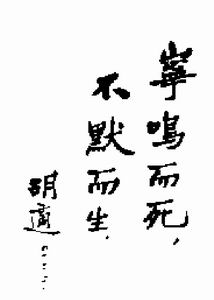 寧鳴而死，
不默而生。
胡適